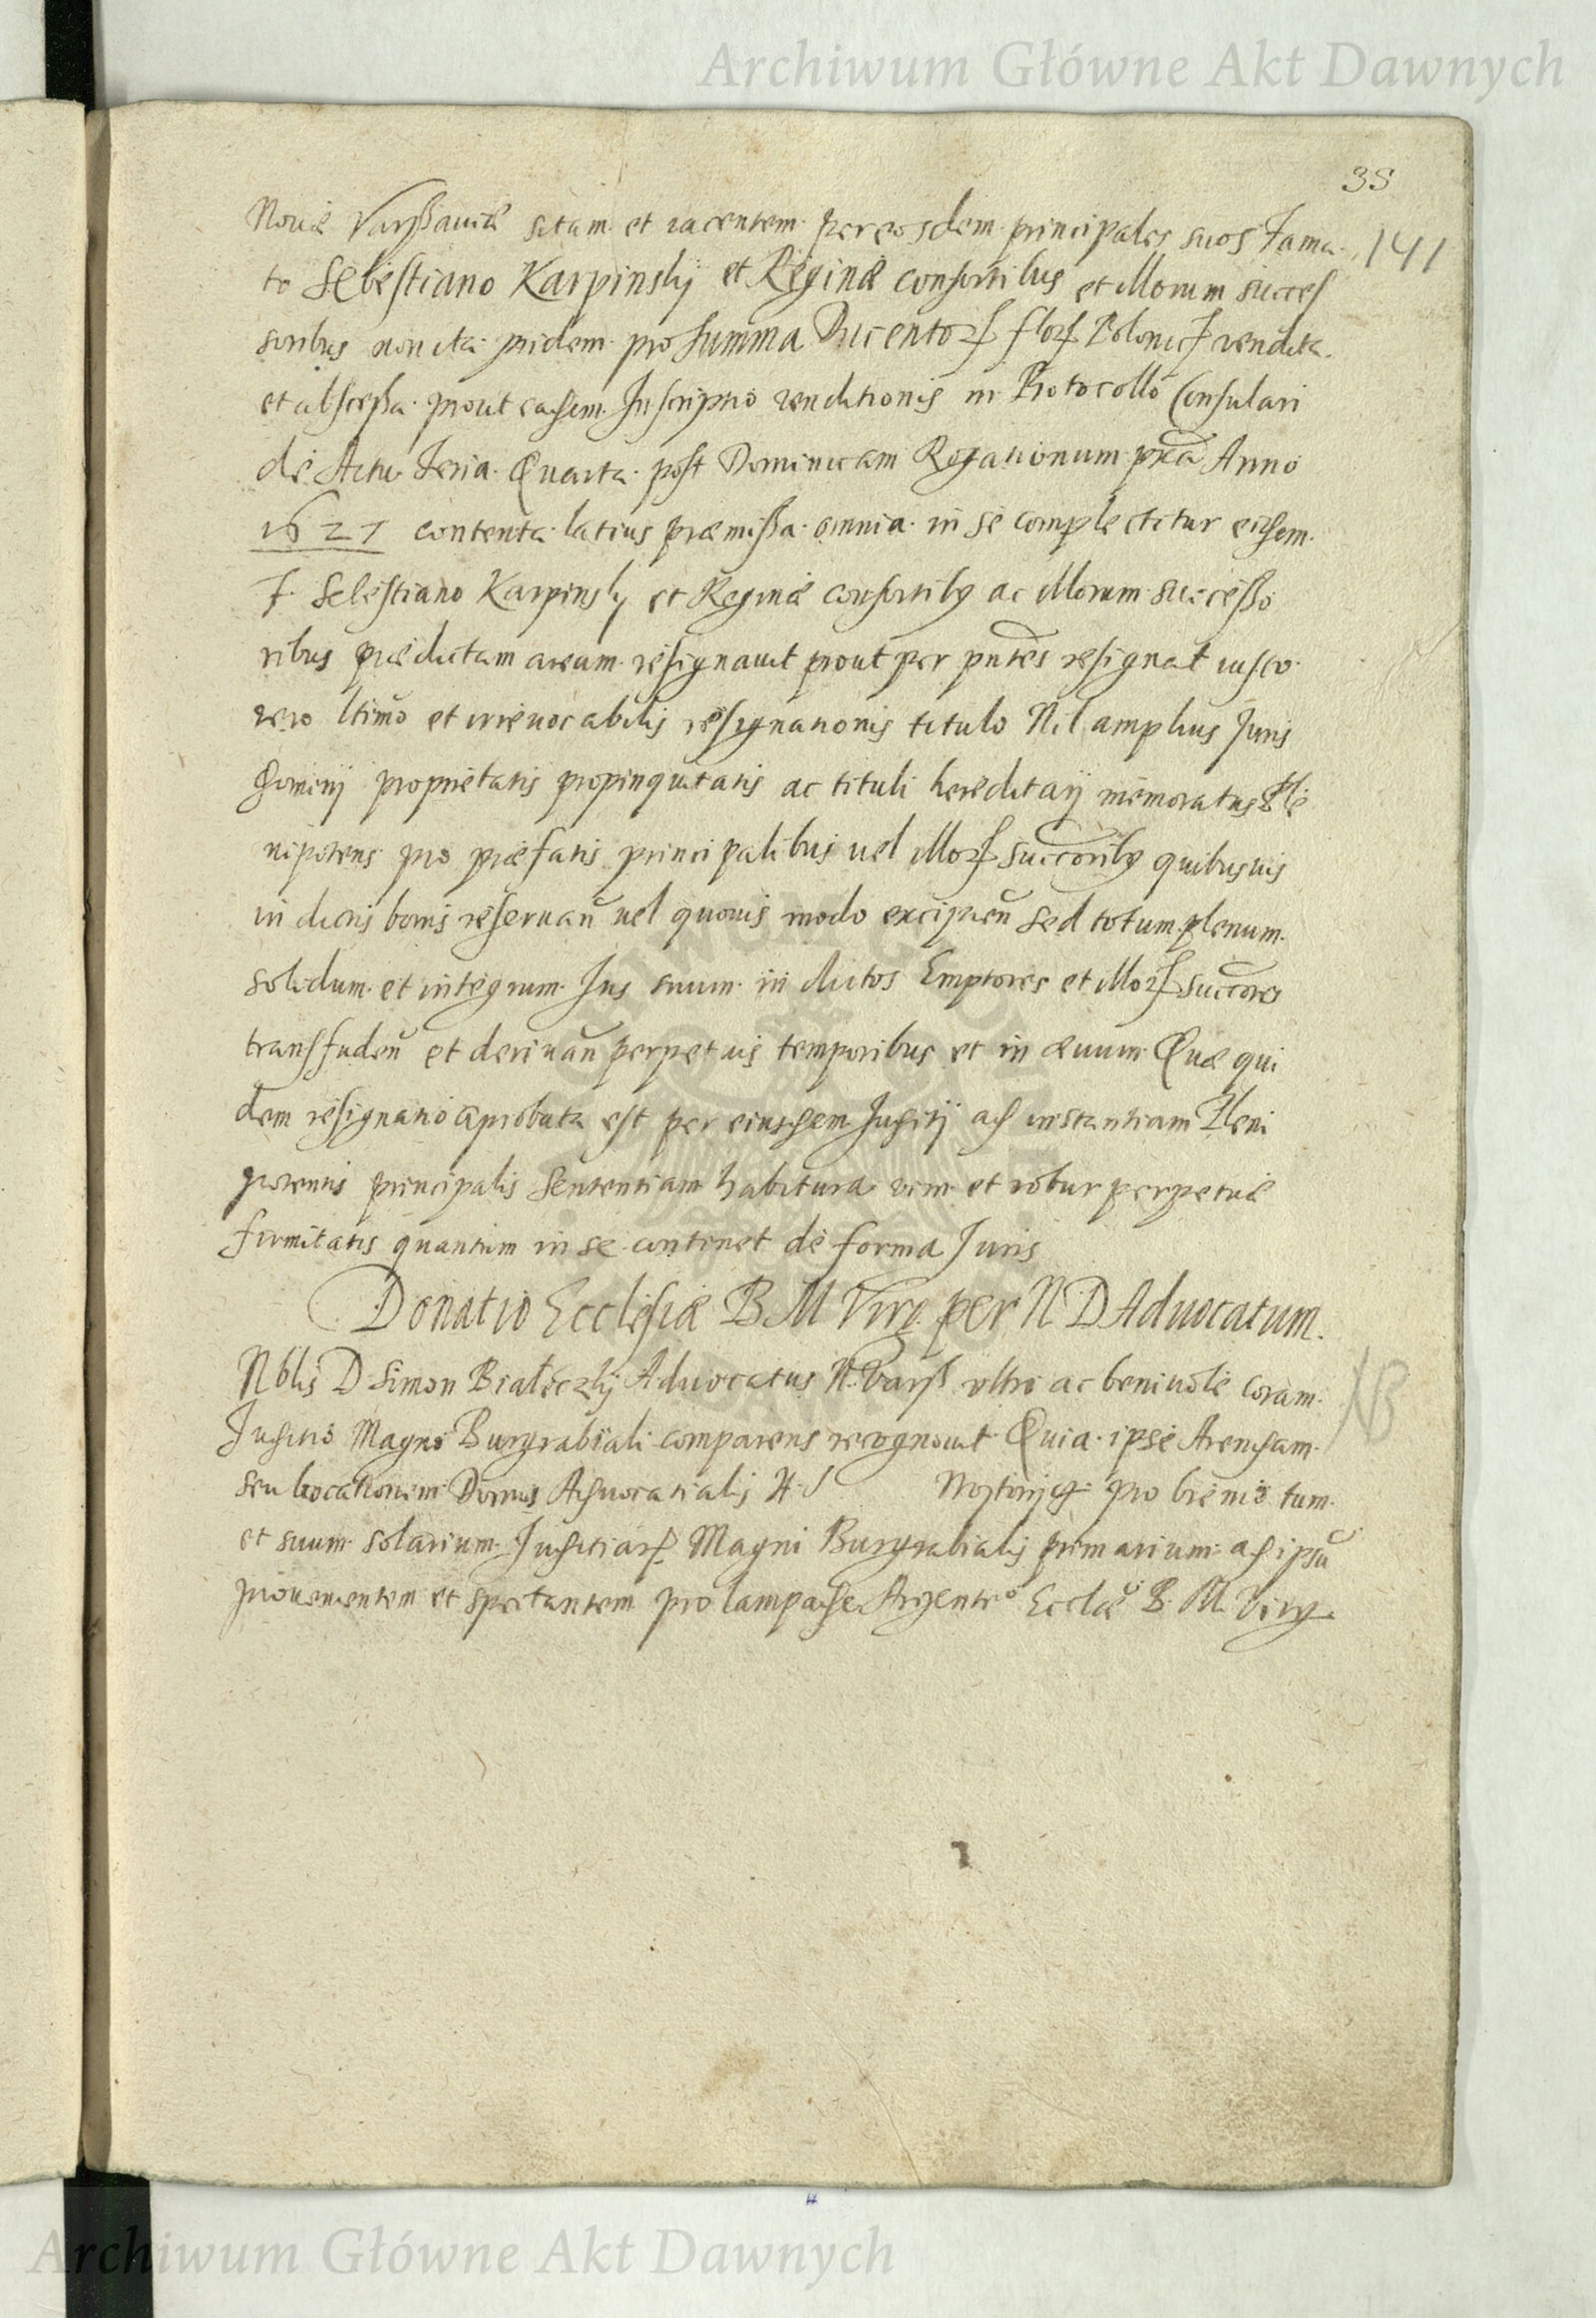 Archiwum Główne Akt Dawnych
35
141
Novæ Varssaviæ sitam et iacentem per eosdem principales suos Fama
to Sebestiano Karpinsky et Reginæ consortibus et illorum succes
soribus non ita pridem pro summa Ducentor. flor. Polonic. vendita
et abscessa prout eadem Inscriptio venditionis in Protocollo Consulari
de Actu Feria Quarta post Dominicam Rogationum pxa Anno
1627 contenta latius præmissa omnia in se complectitur eisdem
F. Sebestiano Karpinsky et Reginæ consortibus ac illorum successo
ribus prædictam aream resignavit prout per pntes resignat iusto
vero ltimo et irrevocabilis resignationis titulo Nil amplius Juris
dominij proprietatis propinquitatis ac tituli hereditarij memoratus Ple
nipotens pro præfatis principalibus vel illor. succorib9 quibusvis
in dictis bonis reservan vel quovis modo excipien sed totum plenum
solidum et integrum Jus suum in dictos Emptores et illor. succores
transfuden et derivan perpetuis temporibus et in ævum Quæ qui
dem resignatio aprobata est per eiusdem Juditij ad instantiam Pleni
potentis principalis sententiam habitura vim et robur perpetuæ
firmitatis quantum in se continet de forma Juris
Donatio Ecclesiæ B M Virg. per N D Advocatum.
Nblis D Simon Białeczky Advocatus N. Varss ultro ac benivole coram
NB
Juditio Magno Burgrabiali comparens recognovit Quia ipse Arendam
seu locationem Domus Advocatialis pro biennio tum
et suum solarium Juditiar. Magni Burgrabialis primarium ad ipsu
provenientem et spectantem pro lampade Argenteo Ecclæ B. M. Virg.
Archiwum Główne Akt Dawnych